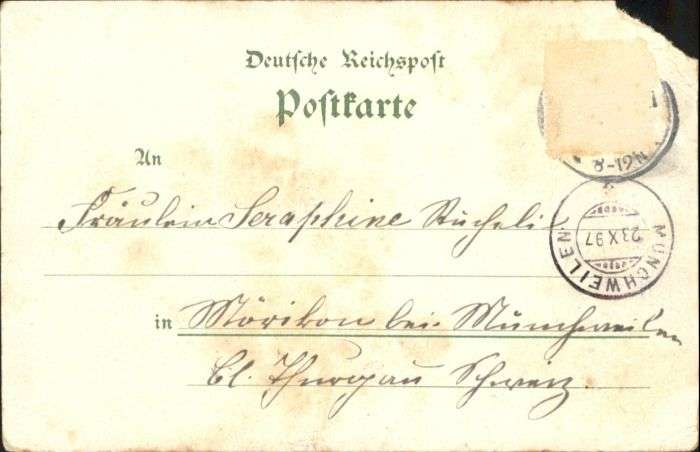 Deutsche Reichspost
Postkarte
An
8-12N
Fräulein Seraphine Stucheli
MÜNCHWEILEN
23 X 97
in Mörikon bei Münchweilen
Ct. Thurgau Schweiz.